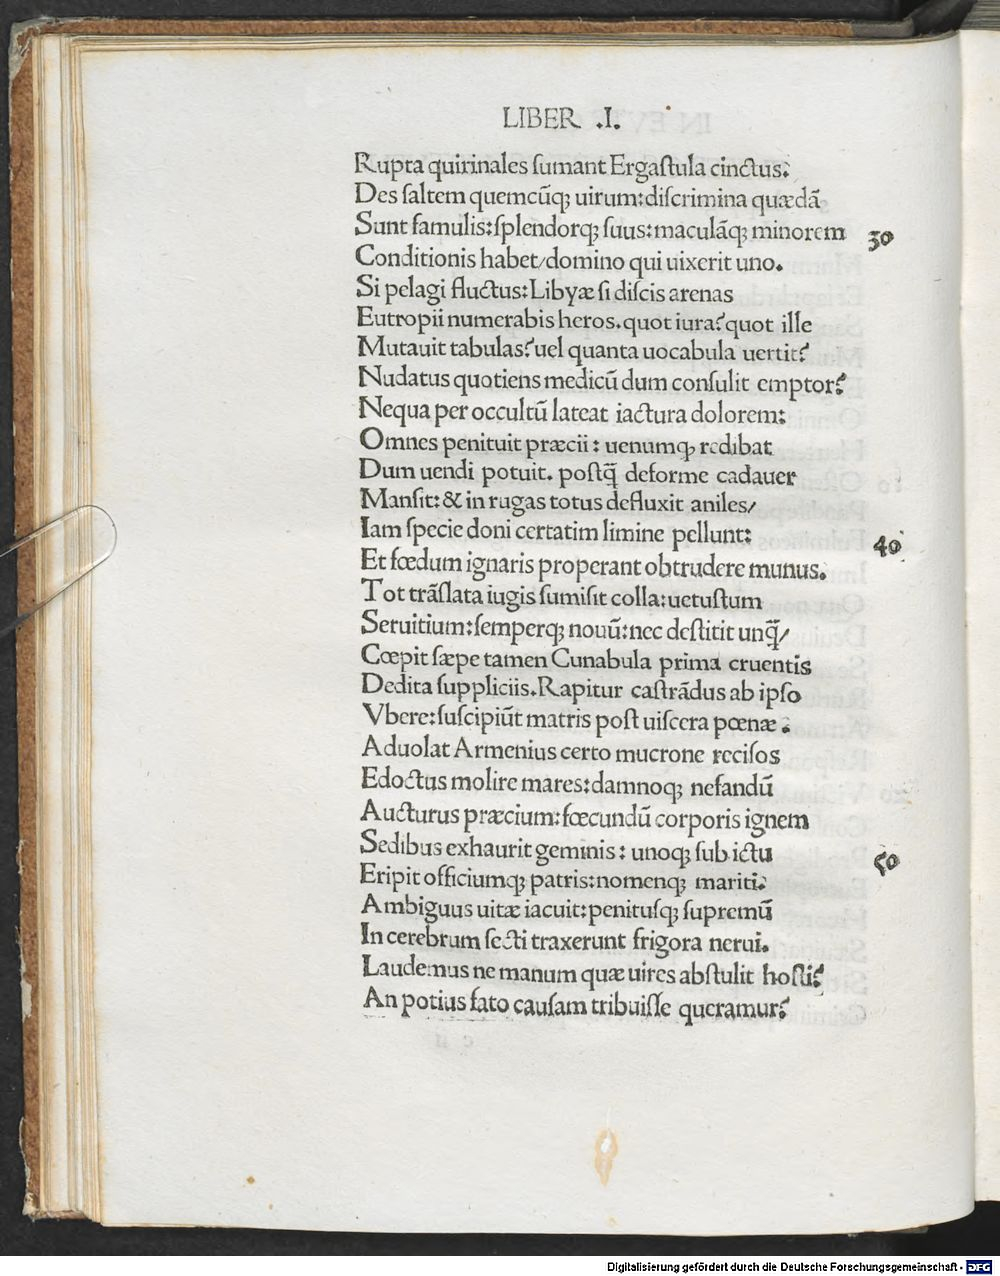 LIBER .I.
Rupta quirinales ſumant Ergaſtula cinctus:
Des ſaltem quemcũq; uirum: diſcrimina quædã
Sunt famulis: ſplendorq; ſuus: maculãq; minorem 30
Conditionis habet/domino qui uixerit uno.
Si pelagi fluctus: Libyæ ſi diſcis arenas
Eutropii numerabis heros. quot iura? quot ille
Mutauit tabulas? uel quanta uocabula uertit?
Nudatus quotiens medicũ dum conſulit emptor?
Nequa per occultũ lateat iactura dolorem:
Omnes penituit præcii: uenumq; redibat
Dum uendi potuit. poſtq̃ deforme cadauer
Manſit: & in rugas totus defluxit aniles/
Iam ſpecie doni certatim limine pellunt: 40
Et fœdum ignaris properant obtrudere munus.
Tot trãſlata iugis ſumiſit colla: uetuſtum
Seruitium: ſemperq; nouũ: nec deſtitit unq̃/
Cœpit ſæpe tamen Cunabula prima cruentis
Dedita ſuppliciis. Rapitur caſtrãdus ab ipſo
Vbere: ſuſcipiũt matris poſt uiſcera pœnæ.
Aduolat Armenius certo mucrone reciſos
Edoctus molire mares: damnoq; nefandũ
Aucturus præcium: fœcundũ corporis ignem
Sedibus exhaurit geminis: unoq; ſub ictu 50
Eripit officiumq; patris: nomenq; mariti.
Ambiguus uitæ iacuit: penitusq; ſupremũ
In cerebrum ſecti traxerunt frigora nerui.
Laudemus ne manum quæ uires abſtulit hoſti?
An potius fato cauſam tribuiſſe queramur?
Digitalisierung gefördert durch die Deutsche Forschungsgemeinschaft - DFG